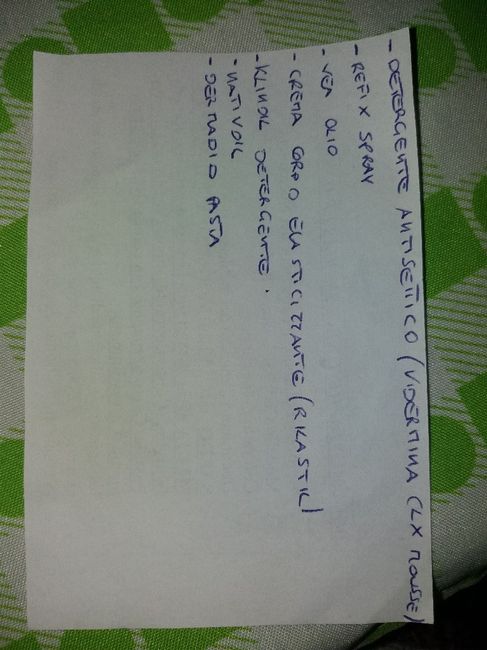 - DETERGENTE ANTISETTICO (VIDERMINA CLX MOUSSE)
- REFIX SPRAY
- VEA OLIO
- CREMA CORPO ELASTICIZZANTE (RILASTIL)
- KLINDIL DETERGENTE.
- NATIVOIL
- DERMADIO PASTA